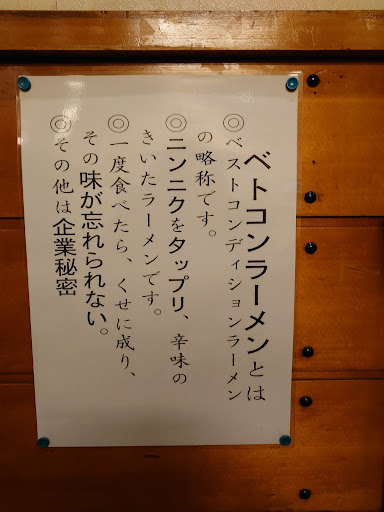 ベトコンラーメンとは
◎ベストコンディションラーメン
の略称です。
◎ニンニクをタップリ、辛味の
きいたラーメンです。
◎一度食べたら、くせに成り、
その味が忘れられない。
◎その他は企業秘密